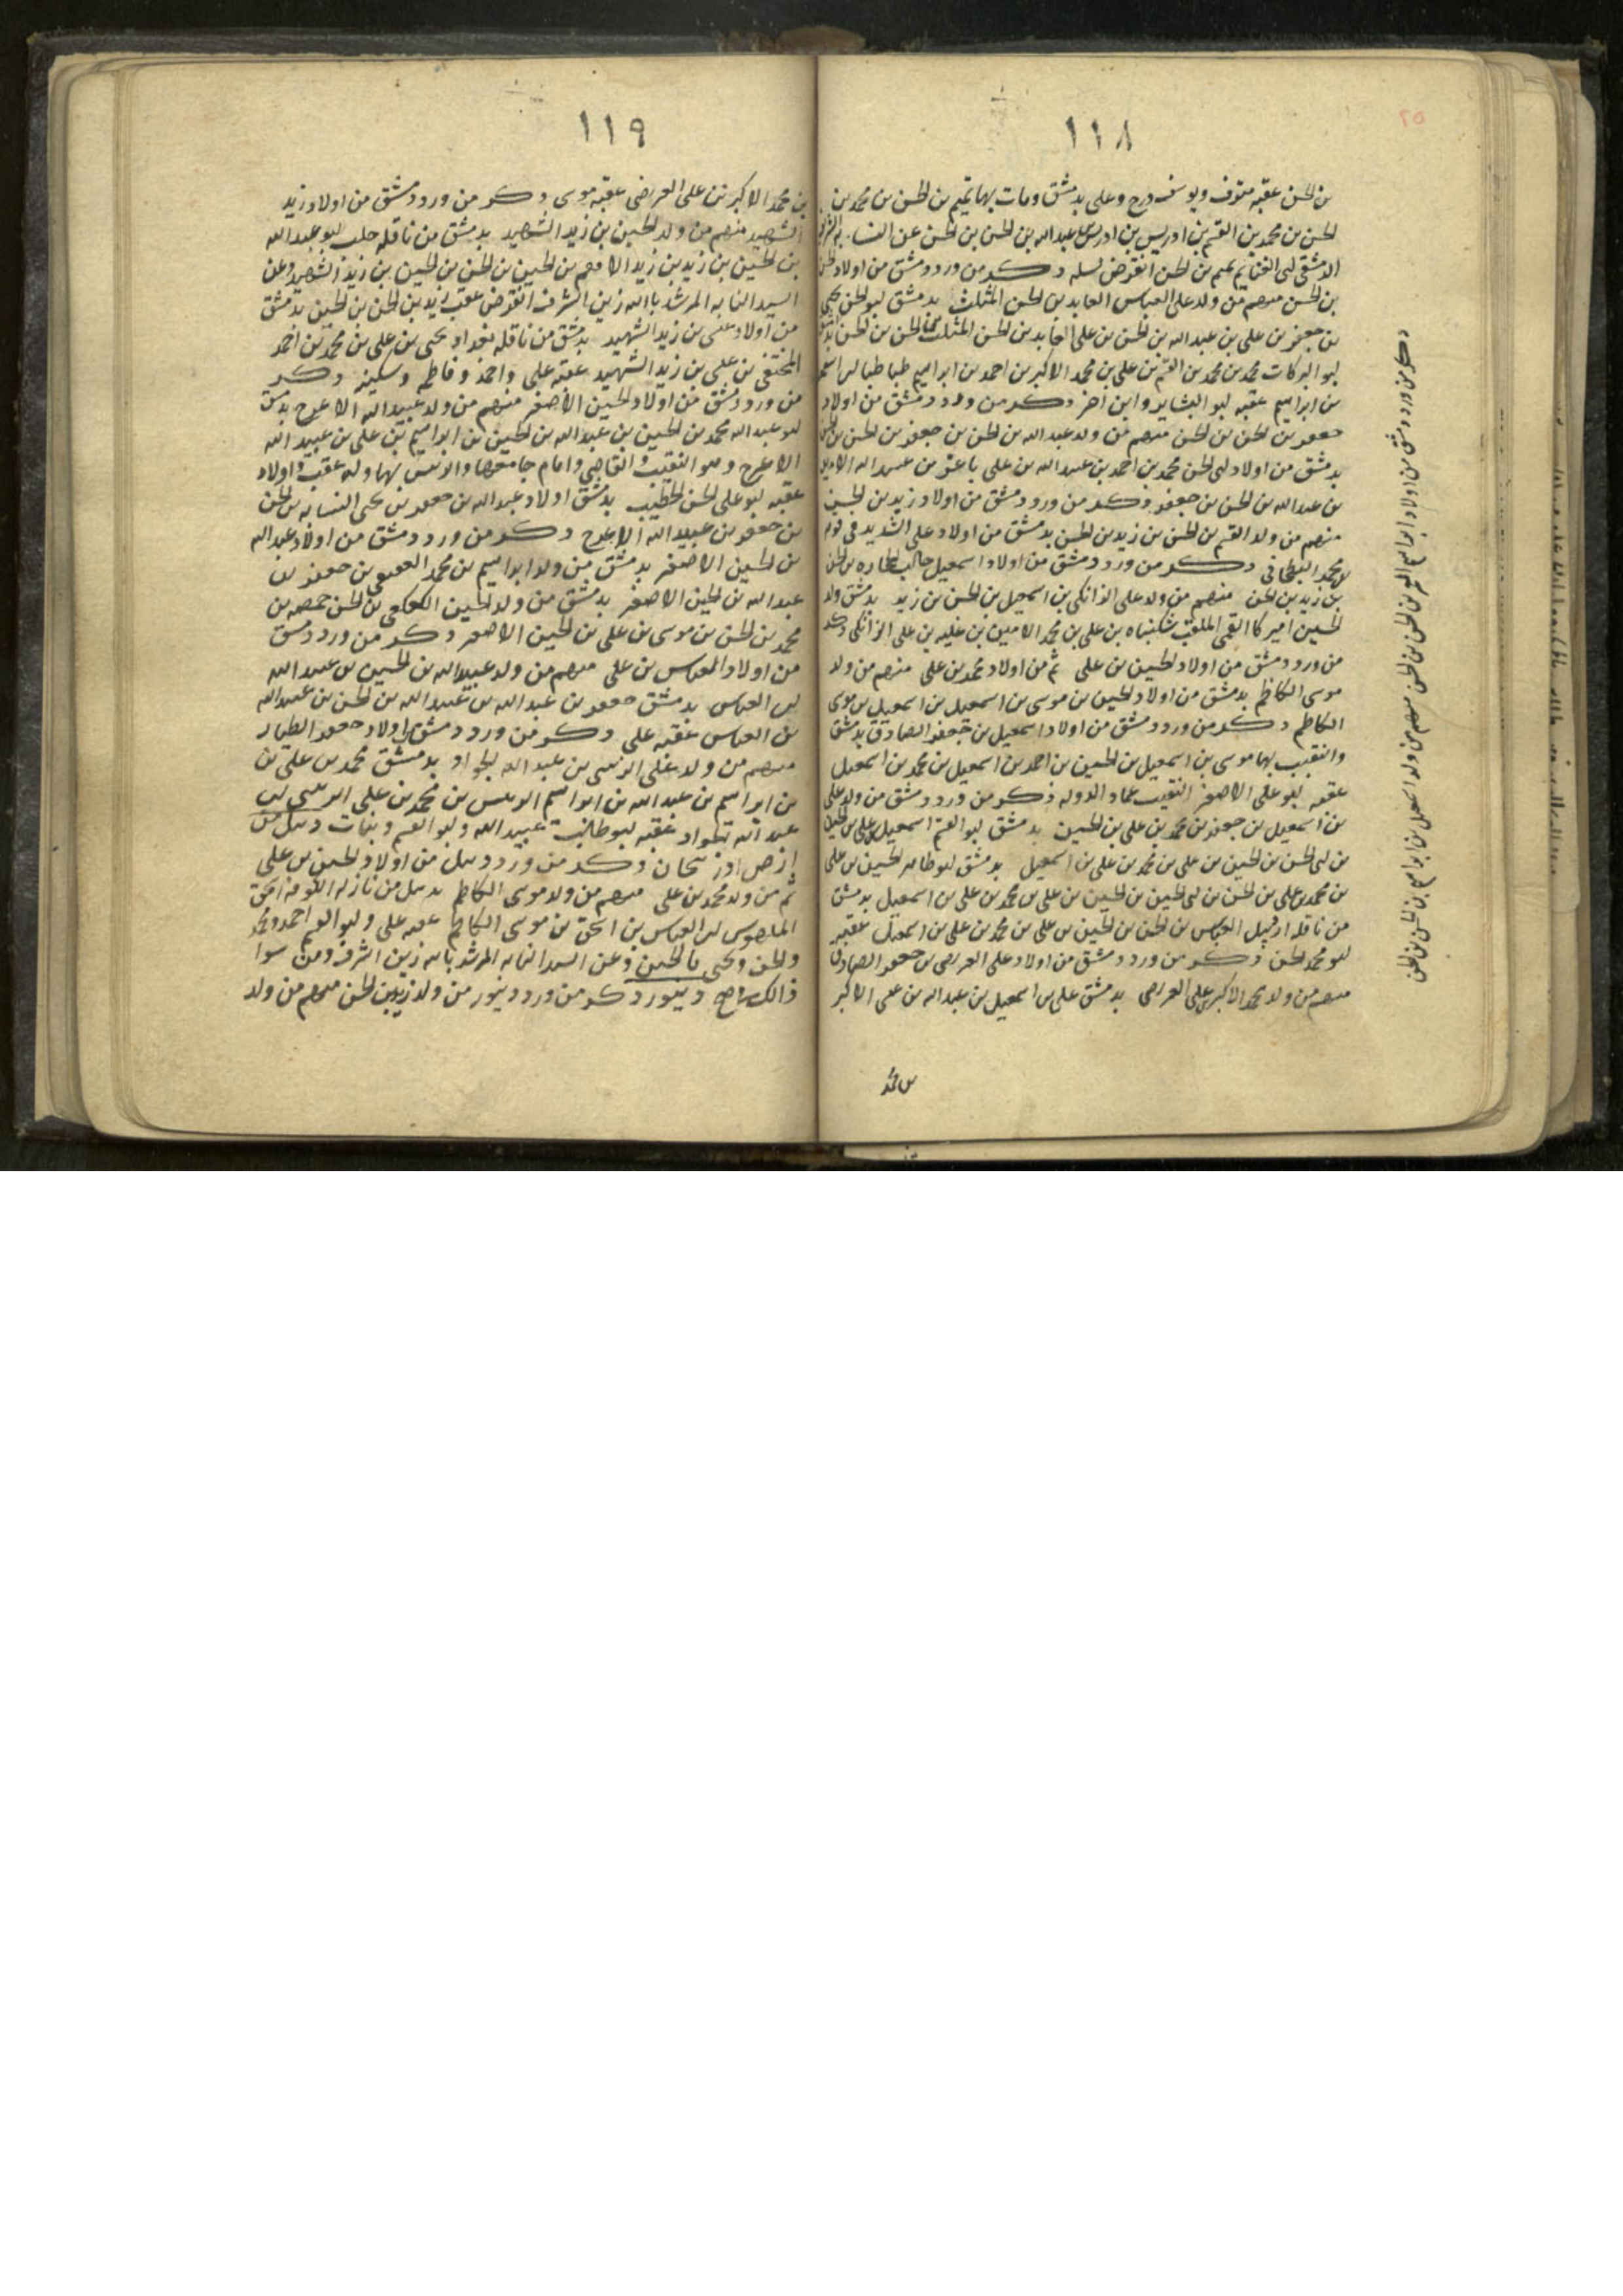 ١١٨
بن الحسن عقبه متوف ويوسف درج وعلى بدمشق ومات بها تميم بن الحسن بن محمد بن
الحسن بن محمد بن القسم بن ادريس بن ادريس بن عبدالله بن الحسن بن الحسن عن النسابه
الدمشقى ابى الغنايم تميم بن الحسن انقرض نسله ذكر من ورد دمشق من اولاد الحسن
بن الحسن منهم من ولد على العباس العابد بن الحسن المثلث بدمشق ابو الحسن يحيى
بن جعفر بن على بن عبد الله بن الحسن بن على العابد بن الحسن المثلث بن الحسن بن الحسن
ابو البركات محمد بن محمد بن القسم بن على بن محمد الاكبر بن احمد بن ابراهيم طباطبا بن اسمعيل
بن ابراهيم عقبه ابو البشاير وابن اخر ذكر من ورد دمشق من اولاد
جعفر بن الحسن بن الحسن منهم من ولد عبد الله بن الحسن بن جعفر بن الحسن بن الحسن
بدمشق من اولاد ابى الحسن محمد بن احمد بن عبيد الله بن على باغر بن عبيد الله الامير
بن عبد الله بن الحسن بن جعفر ذكر من ورد دمشق من اولاد زيد بن الحسن
منهم من ولد القسم بن الحسن بن زيد بن الحسن بدمشق من اولاد على الشديد فى قوم
بن محمد البطحانى ذكر من ورد دمشق من اولاد اسمعيل جالب الحجاره بن الحسن
بن زيد بن الحسن منهم من ولد على الزانكى بن اسمعيل بن الحسن بن زيد بدمشق ولد
الحسين اميركا القمى الملقب شكنباه بن على بن محمد الامين بن على الزانكى ذكر
من ورد دمشق من اولاد الحسين بن على ثم من اولاد محمد بن على منهم من ولد
موسى الكاظم بدمشق من اولاد الحسين بن موسى بن اسمعيل بن اسمعيل بن موسى
الكاظم ذكر من ورد دمشق من اولاد اسمعيل بن جعفر الصادق بدمشق
والنقيب بها موسى بن اسمعيل بن الحسين بن احمد بن اسمعيل بن محمد بن اسمعيل
عقبه ابو على الاصغر النقيب عماد الدوله ذكر من ورد دمشق من ولد على
بن اسمعيل بن جعفر بن محمد بن على بن الحسين بدمشق ابو القسم اسمعيل بن على بن الحسين
بن ابى الحسن بن الحسين بن على بن محمد بن على بن اسمعيل بدمشق ابو طالب الحسين بن على
بن محمد بن على بن الحسن بن ابى الحسين بن الحسين بن على بن محمد بن على بن اسمعيل بدمشق
من ناقله اردبيل العباس بن الحسن بن الحسين بن على بن محمد بن على بن اسمعيل عقبه
ابو محمد الحسن ذكر من ورد دمشق من اولاد على العريضى بن جعفر الصادق
منهم من ولد محمد الاكبر بن على العريضى بدمشق على بن اسمعيل بن عبد الله بن عيسى الاكبر
بن محمد
ذكر من ورد دمشق من اولاد ابراهيم الغمر بن الحسن بن الحسن منهم من ولد اسمعيل بن ابراهيم بن الحسن بن الحسن
١١٩
بن محمد الاكبر بن على العريضى عقبه موسى ذكر من ورد دمشق من اولاد زيد
الشهيد منهم من ولد الحسين بن زيد الشهيد بدمشق من ناقله حلب ابو عبد الله
بن الحسين بن زيد بن زيد الاصم بن الحسين بن الحسن بن الحسين بن زيد الشهيد وعن
السيد النسابه المرشد بالله زين الشرف انقرض عقب زيد بن الحسن بن الحسين بدمشق
من اولاد عيسى بن زيد الشهيد بدمشق من ناقله بغداد يحيى بن على بن محمد بن احمد
المختفى بن عيسى بن زيد الشهيد عقبه على واحمد وفاطمه وسكينه ذكر
من ورد دمشق من اولاد الحسين الاصغر منهم من ولد عبيد الله الاعرج بدمشق
ابو عبد الله محمد بن الحسين بن عبد الله بن الحسين بن ابراهيم بن على بن عبيد الله
الاعرج وهو النقيب والقاضى وامام جامعها والرئيس بها وله عقب واولاد
عقبه ابو على الحسن الخطيب بدمشق اولاد عبد الله بن جعفر بن يحيى النسابه بن الحسن
بن جعفر بن عبيد الله الاعرج ذكر من ورد دمشق من اولاد عبد الله
بن الحسين الاصغر بدمشق من ولد ابراهيم بن محمد العقيقى بن جعفر بن
عبد الله بن الحسين الاصغر بدمشق من ولد الحسين الكعكى بن الحسن حمصه بن
محمد بن الحسن بن موسى بن على بن الحسين الاصغر ذكر من ورد دمشق
من اولاد العباس بن على منهم من ولد عبيد الله بن الحسين بن عبيد الله
بن العباس بدمشق جعفر بن عبد الله بن عبيد الله بن الحسن بن عبيد الله
بن العباس عقبه على ذكر من ورد دمشق من اولاد جعفر الطيار
منهم من ولد على الزينبى بن عبد الله الجواد بدمشق محمد بن على بن
بن ابراهيم بن عبد الله بن ابراهيم الرئيس بن محمد بن على الزينبى بن
عبد الله الجواد عقبه ابو طالب عبيد الله وابو القسم وبنات دبيل من
ارض اذربيجان ذكر من ورد دبيل من اولاد الحسين بن على
ثم من ولد محمد بن على منهم من ولد موسى الكاظم بدبيل من نازله الكوفه اسحق
الملهوس بن العباس بن اسحق بن موسى الكاظم عقبه على وابو القسم احمد ومحمد
والحسن ويحيى والحسين وعن السيد النسابه المرشد بالله زين الشرف ومن سوا
ذالك دينور ذكر من ورد دينور من ولد زيد بن الحسن منهم من ولد